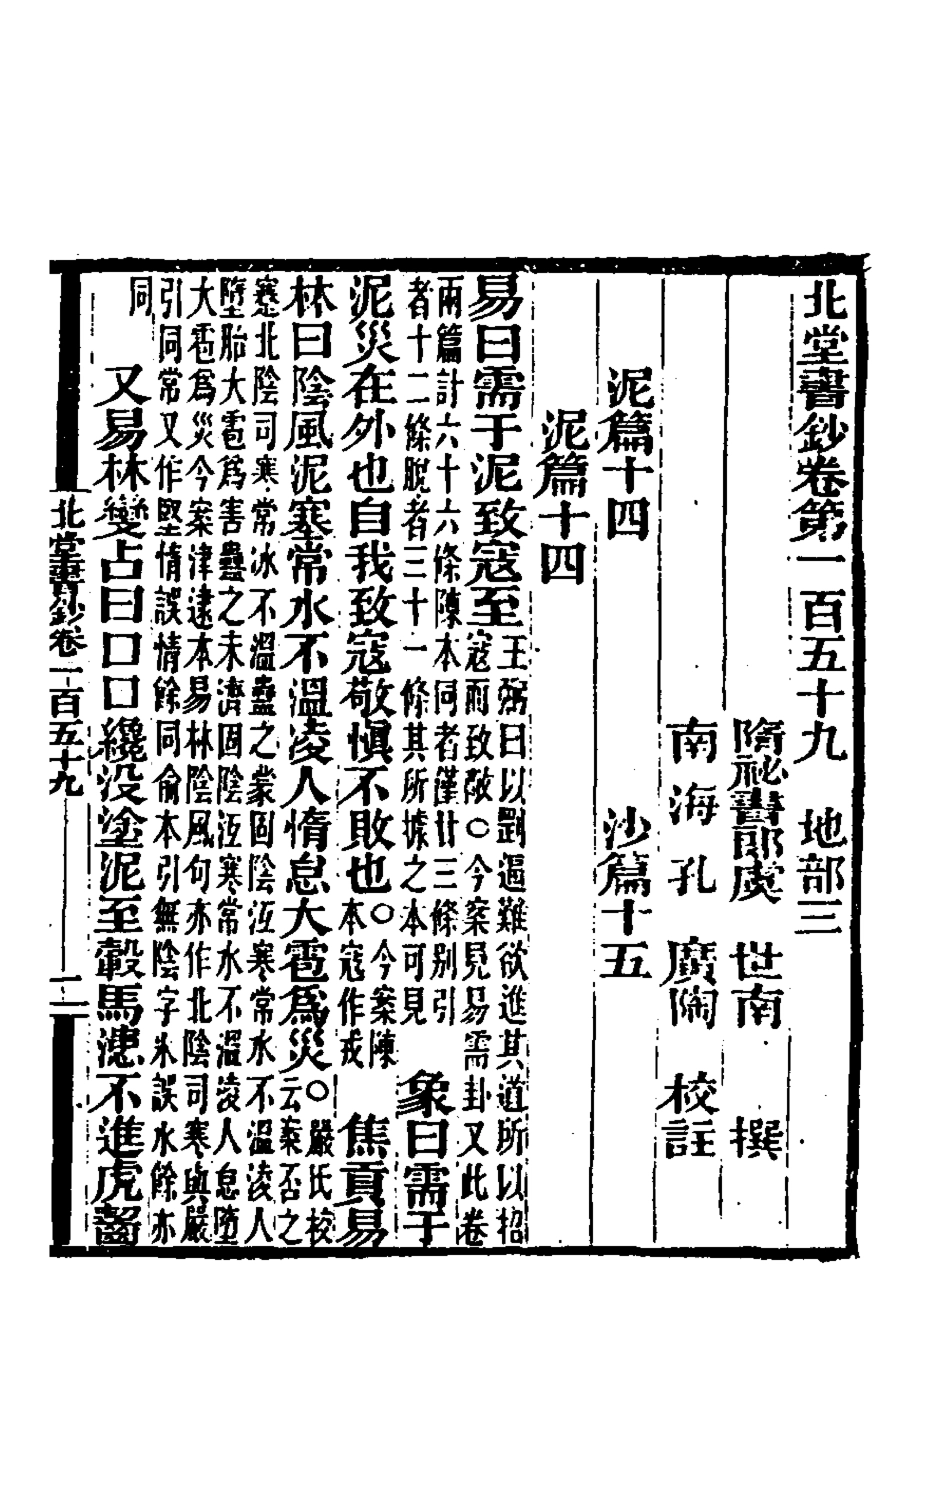 北堂書鈔卷第一百五十九　地部三
隋祕書郎虞　世南　撰
南海孔　廣陶　校註
泥篇十四　沙篇十五
泥篇十四
易曰需于泥致寇至王弼曰以剛逼難欲進其道所以招
寇而致敵○今案見易需卦又此卷
兩篇計六十六條陳本同者僅廿三條別引
者十二條脫者三十一條其所據之本可見象曰需于
泥災在外也自我致寇敬慎不敗也○今案陳
本寇作戎焦貢易
林曰陰風泥塞常水不溫凌人惰怠大雹爲災○嚴氏校
云案否之
蹇北陰司寒常冰不溫蠱之蒙固陰沍寒常水不溫淩人
墮胎大雹爲害蠱之未濟固陰沍寒常水不溫淩人怠墮
大雹爲災今案津逮本易林陰風句亦作北陰司寒與嚴
引同常又作堅情誤情餘同俞本引無陰字氷誤水餘亦
同　又易林變占曰口口纔没塗泥至轂馬濾不進虎齧
北堂書鈔卷一百五十九　一